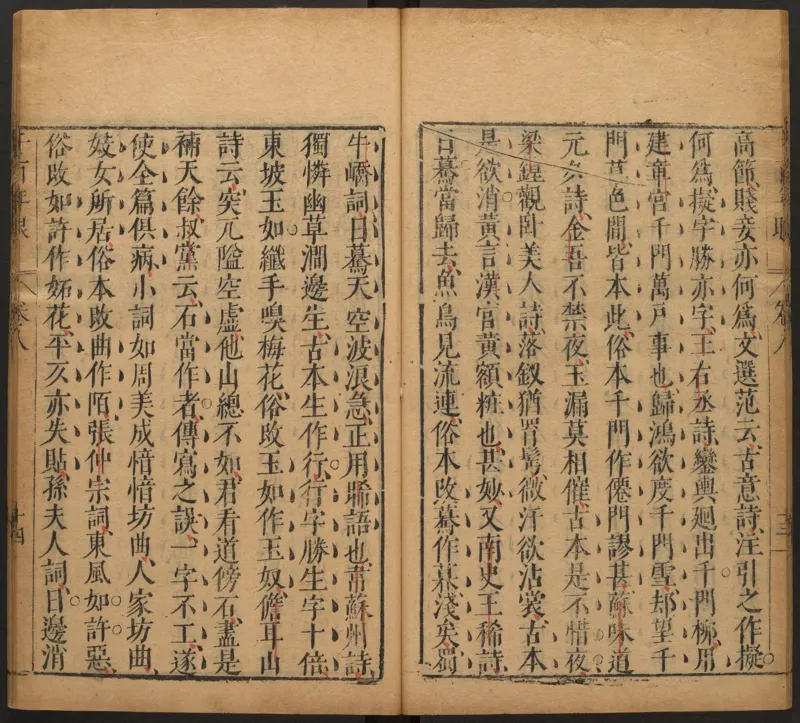 高節賤妾亦何爲文選范云古意詩注引之作擬
何爲擬字勝亦字王右丞詩鑾輿迴出千門柳用
建章宮千門萬戶事也歸鴻欲度千門雪却望千
門草色間皆本此俗本千門作僊門謬甚蘇味道
元夕詩金吾不禁夜玉漏莫相催古本是不惜夜
梁鍠觀卧美人詩落釵猶罥鬢微汗欲沾裳古本
是欲消黃言漢宮黃額粧也甚妙又南史王稀詩
日驀當歸去魚鳥見流連俗本改驀作暮淺矣蜀
牛嶠詞日驀天空波浪急正用晞語也韋蘇州詩
獨憐幽草澗邊生古本生作行行字勝生字十倍
東坡玉如纖手嗅梅花俗改玉如作玉奴儋耳山
詩云突兀隘空虛他山總不如君看道傍石盡是
補天餘叔黨云石當作者傳寫之誤一字不工遂
使全篇俱病小詞如周美成愔愔坊曲人家坊曲
妓女所居俗本改曲作陌張仲宗詞東風如許惡
俗改如許作妬花平仄亦失貼孫夫人詞日邊消
卷八
十四